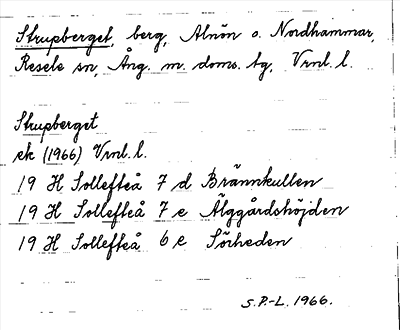 Strupberget, berg, Alnön o. Nordhammar,
Resele sn, Ång. m. doms. tg, Vrnl. l.
Strupberget
ek (1966) Vrnl. l.
19 H Sollefteå 7 d Brännkullen
19 H Sollefteå 7 e Älggårdshöjden
19 H Sollefteå 6 e Sörheden
S.P.-L. 1966.